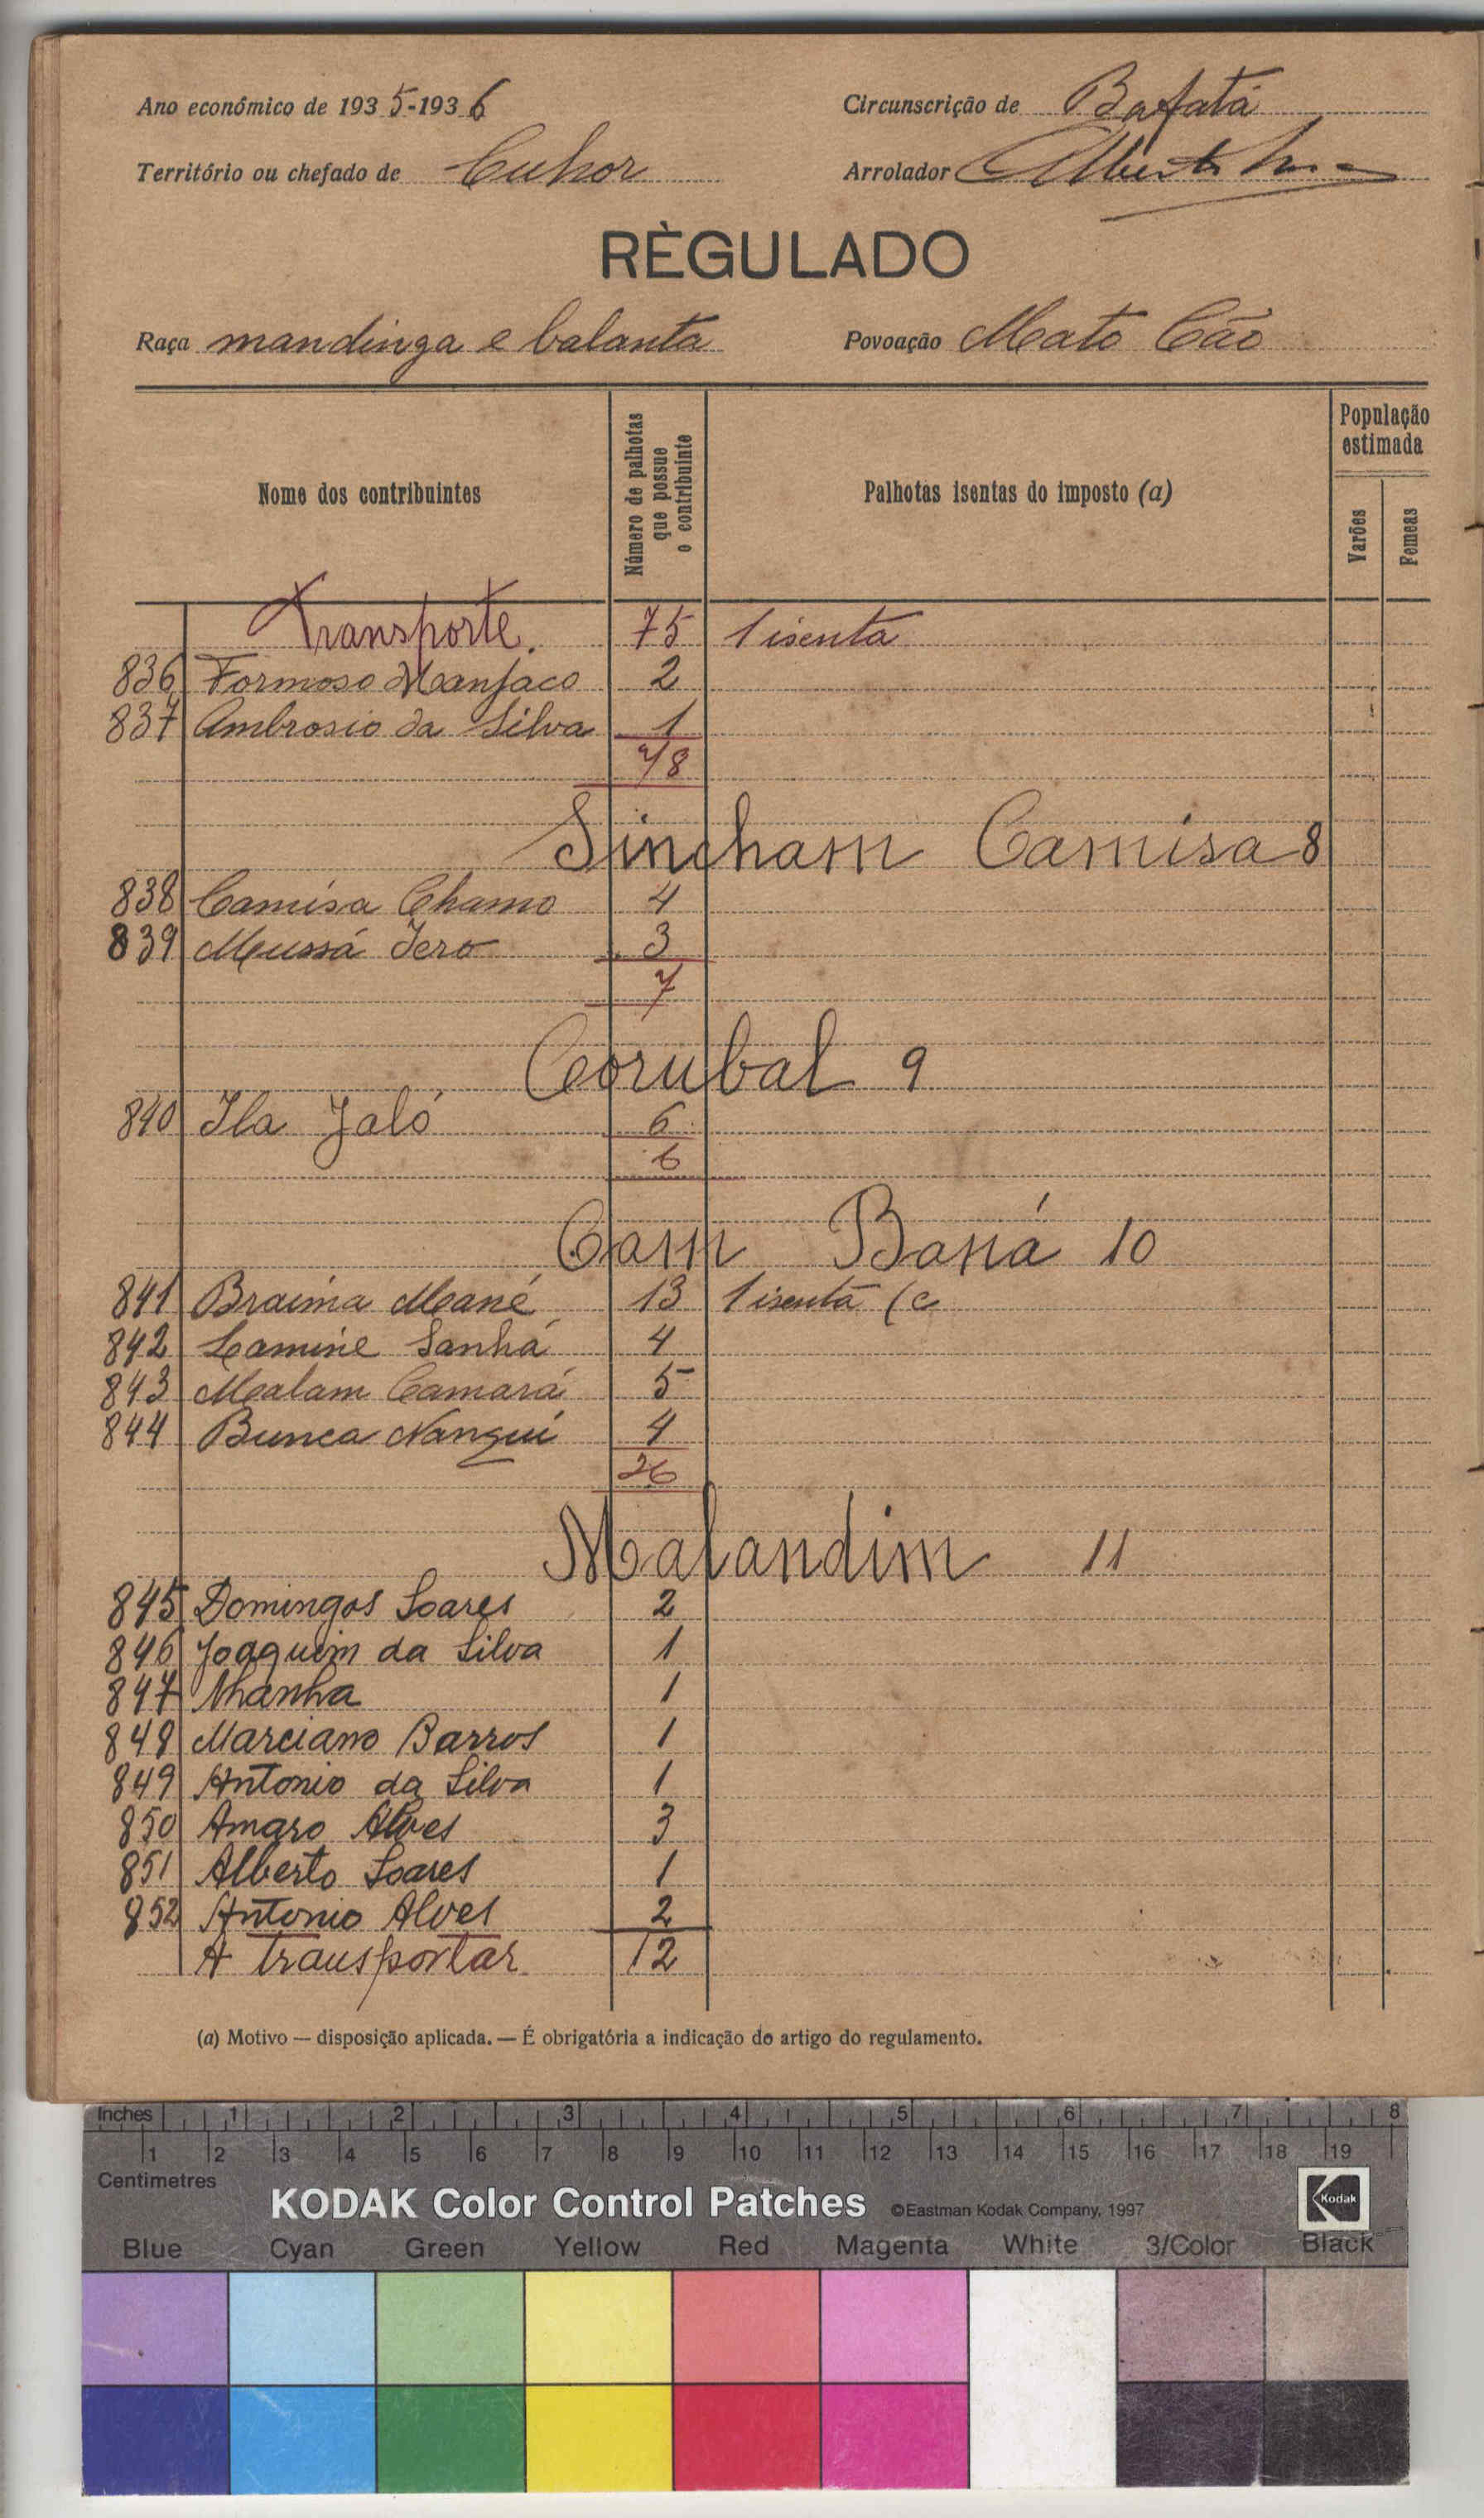 Ano económico de 1935-1936 Circunscrição de Bafatá
Território ou chefado de Cuhor Arrolador Alberto
RÈGULADO
Raça mandinga e balanta Povoação Mato Cão
Nome dos contribuintes
Número de palhotas que possue o contribuinte
Palhotas isentas do imposto (a)
População estimada
Varões
Femeas
Transporte. 75 1 isenta
836 Formoso Manjaco 2
837 Ambrosio da Silva 1
78
Sincham Camisa 8
838 Camisa Chamo 4
839 Mussá Jero 3
7
Corubal 9
840 Ila Jaló 6
6
Cam Baná 10
841 Braima Mané 13 1 isenta (c
842 Lamine Sanhá 4
843 Malam Camará 5
844 Bunca Nangui 4
26
Malandim 11
845 Domingos Soares 2
846 Joaquim da Silva 1
847 Nhanha 1
848 Marciano Barros 1
849 Antonio da Silva 1
850 Amaro Alves 3
851 Alberto Soares 1
852 Antonio Alves 2
A transportar 12
(a) Motivo — disposição aplicada. — É obrigatória a indicação do artigo do regulamento.
Inches 1 2 3 4 5 6 7 8
1 2 3 4 5 6 7 8 9 10 11 12 13 14 15 16 17 18 19
Centimetres
KODAK Color Control Patches ©Eastman Kodak Company, 1997 Kodak
Blue Cyan Green Yellow Red Magenta White 3/Color Black